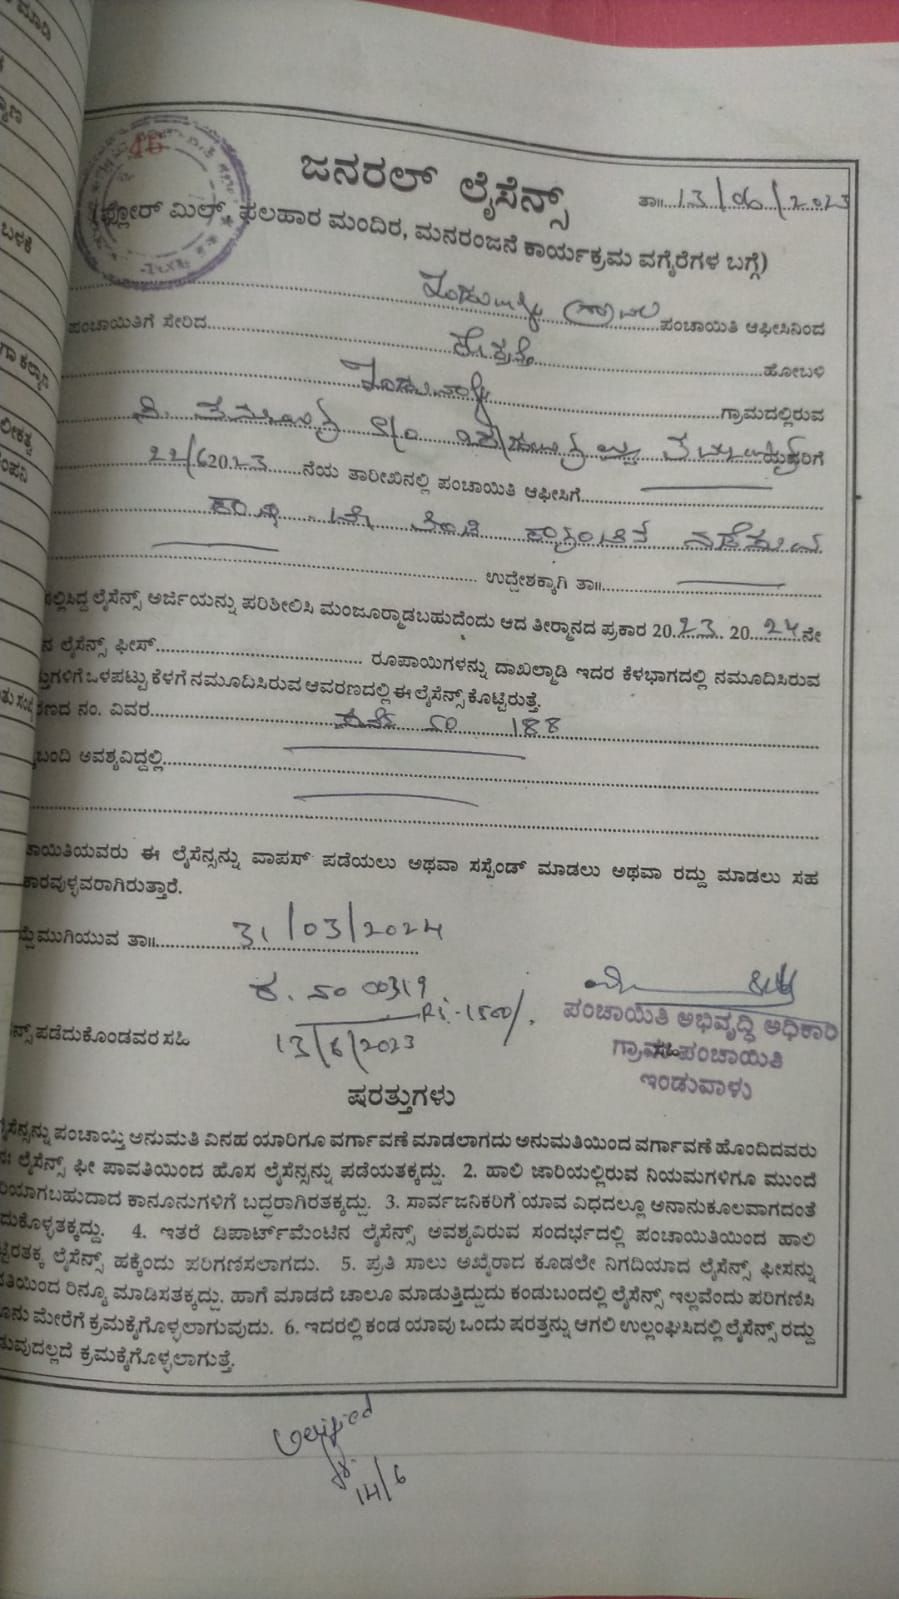 46
ಜನರಲ್ ಲೈಸೆನ್ಸ್
ತಾ॥ 13/06/2023
(ಫ್ಲೋರ್ ಮಿಲ್, ಫಲಹಾರ ಮಂದಿರ, ಮನರಂಜನೆ ಕಾರ್ಯಕ್ರಮ ವಗೈರೆಗಳ ಬಗ್ಗೆ)
ಗ್ರಾಮ ಪಂಚಾಯಿತಿ ಆಫೀಸಿನಿಂದ
ಪಂಚಾಯಿತಿಗೆ ಸೇರಿದ ಹೋಬಳಿ
ಗ್ರಾಮದಲ್ಲಿರುವ
S/o ರವರಿಗೆ
22/6 2023 ನೆಯ ತಾರೀಖಿನಲ್ಲಿ ಪಂಚಾಯಿತಿ ಆಫೀಸಿಗೆ
ನಡೆಸುವ
ಉದ್ದೇಶಕ್ಕಾಗಿ ತಾ॥
ಲ್ಲಿಸಿದ್ದ ಲೈಸೆನ್ಸ್ ಅರ್ಜಿಯನ್ನು ಪರಿಶೀಲಿಸಿ ಮಂಜೂರ್‍ಮಾಡಬಹುದೆಂದು ಆದ ತೀರ್‍ಮಾನದ ಪ್ರಕಾರ 2023 2024 ನೇ
ನ ಲೈಸೆನ್ಸ್ ಫೀಸ್ ರೂಪಾಯಿಗಳನ್ನು ದಾಖಲ್ಮಾಡಿ ಇದರ ಕೆಳಭಾಗದಲ್ಲಿ ನಮೂದಿಸಿರುವ
ತ್ತುಗಳಿಗೆ ಒಳಪಟ್ಟು ಕೆಳಗೆ ನಮೂದಿಸಿರುವ ಆವರಣದಲ್ಲಿ ಈ ಲೈಸೆನ್ಸ್ ಕೊಟ್ಟಿರುತ್ತೆ.
ರಣದ ನಂ. ವಿವರ 188
ಬಂದಿ ಅವಶ್ಯವಿದ್ದಲ್ಲಿ
ಚಾಯಿತಿಯವರು ಈ ಲೈಸೆನ್ಸನ್ನು ವಾಪಸ್ ಪಡೆಯಲು ಅಥವಾ ಸಸ್ಪೆಂಡ್ ಮಾಡಲು ಅಥವಾ ರದ್ದು ಮಾಡಲು ಸಹ
ಕಾರವುಳ್ಳವರಾಗಿರುತ್ತಾರೆ.
ಮುಗಿಯುವ ತಾ॥ 31/03/2024
ರ. ನಂ 00319
Rs. 1500/.
ನ್ಸ್ ಪಡೆದುಕೊಂಡವರ ಸಹಿ 13/6/2023
ಪಂಚಾಯಿತಿ ಅಭಿವೃದ್ಧಿ ಅಧಿಕಾರಿ
ಗ್ರಾಮ ಪಂಚಾಯಿತಿ
ಇಂಡುವಾಳು
ಷರತ್ತುಗಳು
ಲೈಸೆನ್ಸನ್ನು ಪಂಚಾಯ್ತಿ ಅನುಮತಿ ವಿನಹ ಯಾರಿಗೂ ವರ್ಗಾವಣೆ ಮಾಡಲಾಗದು ಅನುಮತಿಯಿಂದ ವರ್ಗಾವಣೆ ಹೊಂದಿದವರು
ಲೈಸೆನ್ಸ್ ಫೀ ಪಾವತಿಯಿಂದ ಹೊಸ ಲೈಸೆನ್ಸನ್ನು ಪಡೆಯತಕ್ಕದ್ದು. 2. ಹಾಲಿ ಜಾರಿಯಲ್ಲಿರುವ ನಿಯಮಗಳಿಗೂ ಮುಂದೆ
ರಿಯಾಗಬಹುದಾದ ಕಾನೂನುಗಳಿಗೆ ಬದ್ಧರಾಗಿರತಕ್ಕದ್ದು. 3. ಸಾರ್ವಜನಿಕರಿಗೆ ಯಾವ ವಿಧದಲ್ಲೂ ಅನಾನುಕೂಲವಾಗದಂತೆ
ದುಕೊಳ್ಳತಕ್ಕದ್ದು. 4. ಇತರೆ ಡಿಪಾರ್ಟ್‌ಮೆಂಟಿನ ಲೈಸೆನ್ಸ್ ಅವಶ್ಯವಿರುವ ಸಂದರ್ಭದಲ್ಲಿ ಪಂಚಾಯಿತಿಯಿಂದ ಹಾಲಿ
ಟ್ಟಿರತಕ್ಕ ಲೈಸೆನ್ಸ್ ಹಕ್ಕೆಂದು ಪರಿಗಣಿಸಲಾಗದು. 5. ಪ್ರತಿ ಸಾಲು ಅಖೈರಾದ ಕೂಡಲೇ ನಿಗದಿಯಾದ ಲೈಸೆನ್ಸ್ ಫೀಸನ್ನು
ತಿಯಿಂದ ರಿನ್ಯೂ ಮಾಡಿಸತಕ್ಕದ್ದು. ಹಾಗೆ ಮಾಡದೆ ಚಾಲೂ ಮಾಡುತ್ತಿದ್ದುದು ಕಂಡುಬಂದಲ್ಲಿ ಲೈಸೆನ್ಸ್ ಇಲ್ಲವೆಂದು ಪರಿಗಣಿಸಿ
ನು ಮೇರೆಗೆ ಕ್ರಮಕೈಗೊಳ್ಳಲಾಗುವುದು. 6. ಇದರಲ್ಲಿ ಕಂಡ ಯಾವು ಒಂದು ಷರತ್ತನ್ನು ಆಗಲಿ ಉಲ್ಲಂಘಿಸಿದಲ್ಲಿ ಲೈಸೆನ್ಸ್ ರದ್ದು
ಡುವುದಲ್ಲದೆ ಕ್ರಮಕೈಗೊಳ್ಳಲಾಗುತ್ತೆ.
Verified
14/6